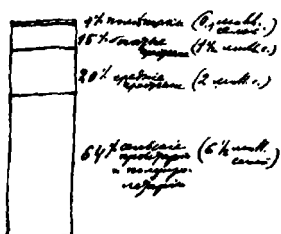 1% помещики (0,1 милл. семей)
15% богатые крестьяне (1½ милл. с.)
20% средние крестьяне (2 милл. с.)
64% сельские пролетарии и полупро-летарии (6½ милл. семей)